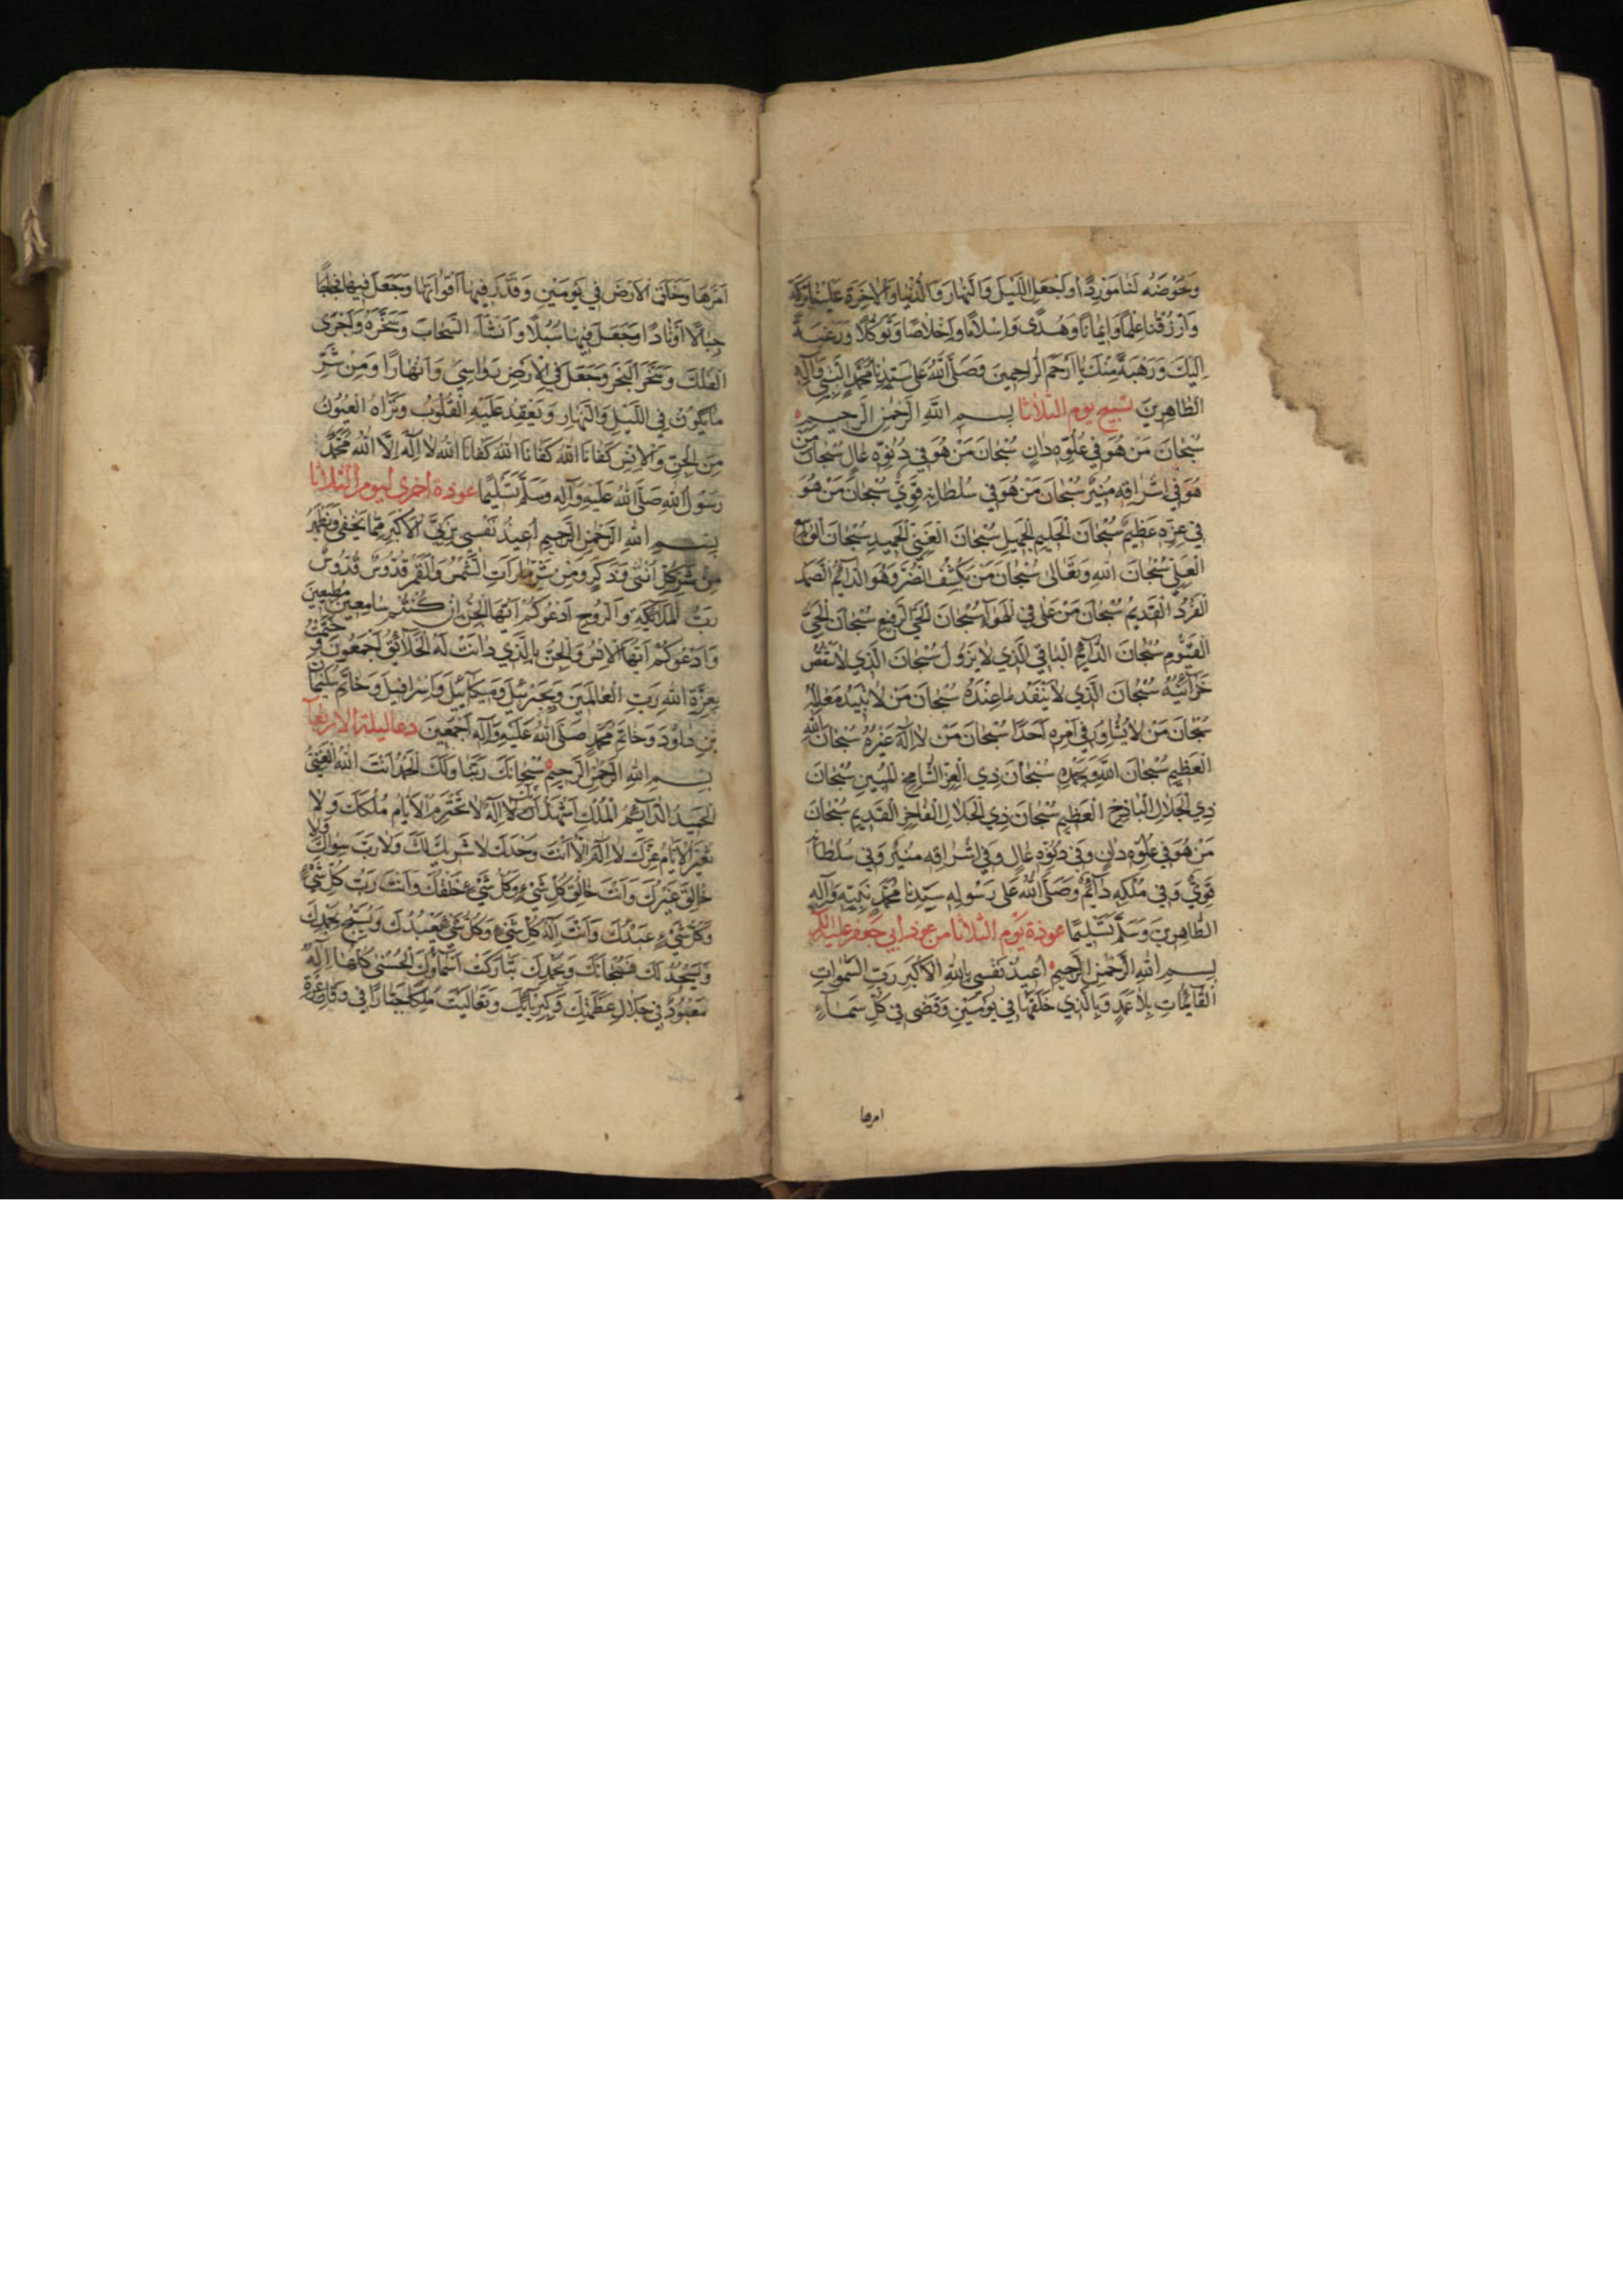 وَحَوْضَهُ لَنَا مَوْرِدًا وَاجْعَلِ اللَّيْلَ وَالنَّهَارَ وَالدُّنْيَا وَالْاٰخِرَةَ عَلَيْنَا بَرَكَةً
وَارْزُقْنَا عِلْمًا وَاِيمَانًا وَهُدًى وَاِسْلَامًا وَاِخْلَاصًا وَتَوَكُّلًا وَرَغْبَةً
اِلَيْكَ وَرَهْبَةً مِنْكَ يَا اَرْحَمَ الرَّاحِمِينَ وَصَلَّى اللّٰهُ عَلَى سَيِّدِنَا مُحَمَّدٍ النَّبِيِّ وَآلِهِ
الطَّاهِرِينَ تسبيح يوم الثلاثا بِسْمِ اللّٰهِ الرَّحْمٰنِ الرَّحِيمِ
سُبْحَانَ مَنْ هُوَ فِي عُلُوِّهِ دَانٍ سُبْحَانَ مَنْ هُوَ فِي دُنُوِّهِ عَالٍ سُبْحَانَ مَنْ
هُوَ فِي اِشْرَاقِهِ مُنِيرٌ سُبْحَانَ مَنْ هُوَ فِي سُلْطَانِهِ قَوِيٌّ سُبْحَانَ مَنْ هُوَ
فِي عِزِّهِ عَظِيمٌ سُبْحَانَ الْحَلِيمِ الْجَمِيلِ سُبْحَانَ الْغَنِيِّ الْحَمِيدِ سُبْحَانَ الْوَاسِعِ
الْعَلِيِّ سُبْحَانَ اللّٰهِ وَتَعَالٰى سُبْحَانَ مَنْ يَكْشِفُ الضُّرَّ وَهُوَ الدَّائِمُ الصَّمَدُ
الْفَرْدُ الْقَدِيمُ سُبْحَانَ مَنْ عَلَى فِي الْهَوَآءِ سُبْحَانَ الْحَيِّ الرَّفِيعِ سُبْحَانَ الْحَيِّ
الْقَيُّومِ سُبْحَانَ الدَّآئِمِ الْبَاقِي الَّذِي لَا يَزُولُ سُبْحَانَ الَّذِي لَا تَنْقُصُ
خَزَآئِنُهُ سُبْحَانَ الَّذِي لَا يَنْفَدُ مَا عِنْدَهُ سُبْحَانَ مَنْ لَا تَبِيدُ مَعَالِمُهُ
سُبْحَانَ مَنْ لَا يُشَاوِرُ فِي اَمْرِهِ اَحَدًا سُبْحَانَ مَنْ لَا اِلٰهَ غَيْرُهُ سُبْحَانَ اللّٰهِ
الْعَظِيمِ سُبْحَانَ اللّٰهِ وَبِحَمْدِهِ سُبْحَانَ ذِي الْعِزِّ الشَّامِخِ الْمُبِينِ سُبْحَانَ
ذِي الْجَلَالِ الْبَاذِخِ الْعَظِيمِ سُبْحَانَ ذِي الْجَلَالِ الْفَاخِرِ الْقَدِيمِ سُبْحَانَ
مَنْ هُوَ فِي عُلُوِّهِ دَانٍ وَفِي دُنُوِّهِ عَالٍ وَفِي اِشْرَاقِهِ مُنِيرٌ وَفِي سُلْطَانِهِ
قَوِيٌّ وَفِي مُلْكِهِ دَآئِمٌ وَصَلَّى اللّٰهُ عَلَى رَسُولِهِ سَيِّدِنَا مُحَمَّدٍ نَبِيِّهِ وَآلِهِ
الطَّاهِرِينَ وَسَلَّمَ تَسْلِيمًا عوذة يَوْم الثلاثا من عوذ أبي جَعفر عليه السلام
بِسْمِ اللّٰهِ الرَّحْمٰنِ الرَّحِيمِ اُعِيذُ نَفْسِي بِاللّٰهِ الْاَكْبَرِ رَبِّ السَّمٰوَاتِ
الْقَآئِمَاتِ بِلَا عَمَدٍ وَبِالَّذِي خَلَقَهَا فِي يَوْمَيْنِ وَقَضٰى فِي كُلِّ سَمَآءٍ
امرها
اَمْرَهَا وَخَلَقَ الْاَرْضَ فِي يَوْمَيْنِ وَقَدَّرَ فِيهَا اَقْوَاتَهَا وَجَعَلَ فِيهَا
جِبَالًا اَوْتَادًا وَجَعَلَ فِيهَا سُبُلًا وَاَنْشَاَ السَّحَابَ وَسَخَّرَهُ وَاَجْرٰى
الْفُلْكَ وَسَخَّرَ الْبَحْرَ وَجَعَلَ فِي الْاَرْضِ رَوَاسِيَ وَاَنْهَارًا وَمِنْ شَرِّ
مَا يَكُونُ فِي اللَّيْلِ وَالنَّهَارِ وَيَعْقِدُ عَلَيْهِ الْقُلُوبُ وَتَرَاهُ الْعُيُونُ
مِنَ الْجِنِّ وَالْاِنْسِ كَفَانَا اللّٰهُ كَفَانَا اللّٰهُ كَفَانَا اللّٰهُ لَا اِلٰهَ اِلَّا اللّٰهُ مُحَمَّدٌ
رَسُولُ اللّٰهِ صَلَّى اللّٰهُ عَلَيْهِ وَآلِهِ وَسَلَّمَ تَسْلِيمًا عوذة اخرى ليوم الثلاثا
بِسْمِ اللّٰهِ الرَّحْمٰنِ الرَّحِيمِ اُعِيذُ نَفْسِي بِرَبِّيَ الْاَكْبَرِ مِمَّا يَخْفٰى وَيَظْهَرُ
مِنْ شَرِّ كُلِّ اُنْثٰى وَذَكَرٍ وَمِنْ شَرِّ مَا رَاَتِ الشَّمْسُ وَالْقَمَرُ قُدُّوسٌ قُدُّوسٌ
رَبُّ الْمَلَآئِكَةِ وَالرُّوحِ اَدْعُوكُمْ اَيُّهَا الْجِنُّ اِنْ كُنْتُمْ سَامِعِينَ مُطِيعِينَ
وَاَدْعُوكُمْ اَيُّهَا الْاِنْسُ وَالْجِنُّ بِالَّذِي دَانَتْ لَهُ الْخَلَائِقُ اَجْمَعُونَ خَتَمْتُ
بِعِزَّةِ اللّٰهِ رَبِّ الْعَالَمِينَ وَبِجَبْرَئِيلَ وَمِيكَآئِيلَ وَاِسْرَافِيلَ وَخَاتَمِ سُلَيْمَانَ
بْنِ دَاوُدَ وَخَاتَمِ مُحَمَّدٍ صَلَّى اللّٰهُ عَلَيْهِ وَآلِهِ اَجْمَعِينَ دعا ليلة الاربعآ
بِسْمِ اللّٰهِ الرَّحْمٰنِ الرَّحِيمِ سُبْحَانَكَ رَبَّنَا وَلَكَ الْحَمْدُ اَنْتَ اللّٰهُ الْغَنِيُّ
الْحَمِيدُ الدَّآئِمُ الْمَلِكُ اَشْهَدُ اَنَّكَ اِلٰهٌ لَا تَخْتَرِمُ الْاَيَّامُ مُلْكَكَ وَلَا
تُغَيِّرُ الْاَيَّامُ عِزَّكَ لَا اِلٰهَ اِلَّا اَنْتَ وَحْدَكَ لَا شَرِيكَ لَكَ وَلَا رَبَّ سِوَاكَ وَلَا
خَالِقَ غَيْرُكَ وَاَنْتَ خَالِقُ كُلِّ شَيْءٍ وَكُلُّ شَيْءٍ خَلْقُكَ وَاَنْتَ رَبُّ كُلِّ شَيْءٍ
وَكُلُّ شَيْءٍ عَبْدُكَ وَاَنْتَ اِلٰهُ كُلِّ شَيْءٍ وَكُلُّ شَيْءٍ يَعْبُدُكَ وَيُسَبِّحُ بِحَمْدِكَ
وَيَسْجُدُ لَكَ فَسُبْحَانَكَ وَبِحَمْدِكَ تَبَارَكَتْ اَسْمَآؤُكَ الْحُسْنٰى كُلُّهَا اِلٰهٌ
مَعْبُودٌ فِي جَلَالِ عَظَمَتِكَ وَكِبْرِيَآئِكَ وَتَعَالَيْتَ مَلِكًا جَبَّارًا فِي وَقَارِ عِزَّةِ